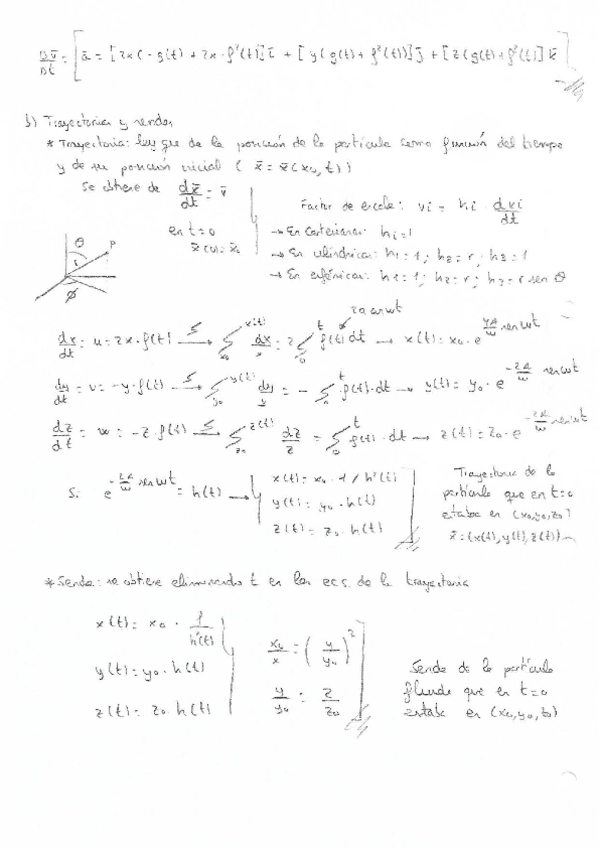 Dv̄/Dt = [ā = [2x(-g(t) + 2x·f²(t)]ī + [y(g(t) + f²(t))]j̄ + [z(g(t) + f²(t)]k̄]
b) Trayectorias y sendas
* Trayectoria: ley que da la posición de la partícula como función del tiempo
y de su posición inicial (x̄ = x̄(x₀, t))
Se obtiene de dx̄/dt = v̄
en t=0
x̄(0) = x̄₀
Factor de escala: vi = hi · dxi/dt
→ En cartesianas: hi = 1
→ En cilíndricas: h₁ = 1; h₂ = r; h₃ = 1
→ En esféricas: h₁ = 1; h₂ = r; h₃ = r sen θ
θ P
φ
2a cos ωt
dx/dt = u = 2x·f(t) → ∫ x₀ x(t) dx/x = 2 ∫ 0 t f(t) dt → x(t) = x₀·e^(4a/ω sen ωt)
dy/dt = v = -y·f(t) → ∫ y₀ y(t) dy/y = - ∫ 0 t f(t)·dt → y(t) = y₀·e^(-2a/ω sen ωt)
dz/dt = w = -z·f(t) → ∫ z₀ z(t) dz/z = ∫ 0 t f(t)·dt → z(t) = z₀·e^(-2a/ω sen ωt)
Si e^(-2a/ω sen ωt) = h(t) →
x(t) = x₀·1/h²(t)
y(t) = y₀·h(t)
z(t) = z₀·h(t)
Trayectoria de la
partícula que en t=0
estaba en (x₀,y₀,z₀)
x̄ = (x(t), y(t), z(t))
* Senda: se obtiene eliminando t en las ecs. de la trayectoria
x(t) = x₀ · 1/h²(t)
y(t) = y₀·h(t)
z(t) = z₀·h(t)
x₀/x = (y/y₀)²
y/y₀ = z/z₀
Senda de la partícula
fluida que en t=0
estaba en (x₀,y₀,z₀)